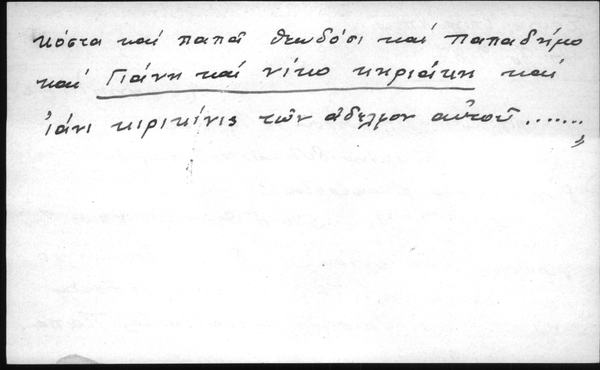 κόστα καί παπᾶ θεωδόσι καί παπαδήμο
καί Γιάνη καί νίκο κηριάκη καί
ἰάνι κιρικίνις τῶν ἀδελφον αὐτοῦ .......»